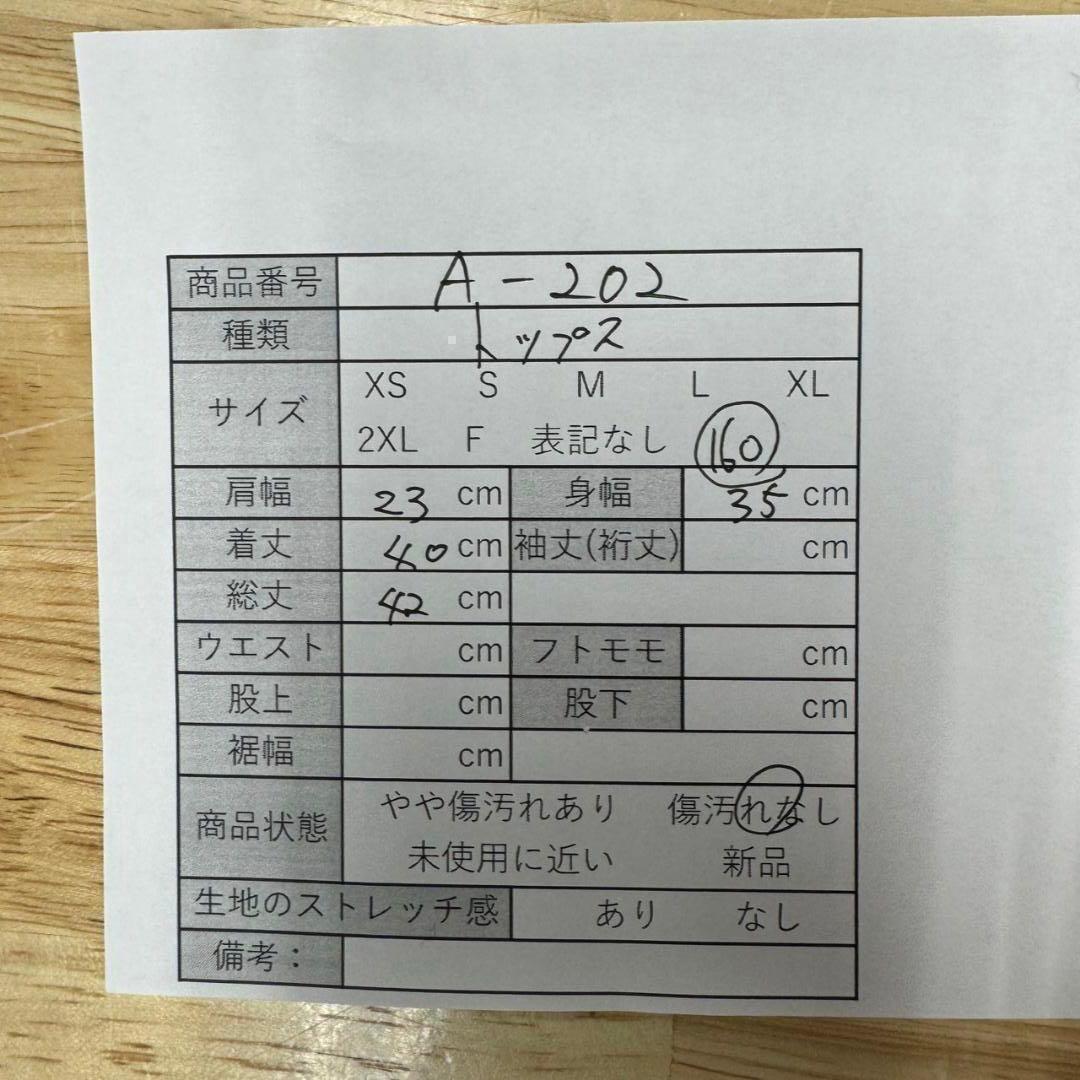 商品番号 A-202
種類 トップス
サイズ XS S M L XL
2XL F 表記なし 160
肩幅 23 cm 身幅 35 cm
着丈 40 cm 袖丈(裄丈) cm
総丈 42 cm
ウエスト cm フトモモ cm
股上 cm 股下 cm
裾幅 cm
商品状態 やや傷汚れあり 傷汚れなし
未使用に近い 新品
生地のストレッチ感 あり なし
備考：